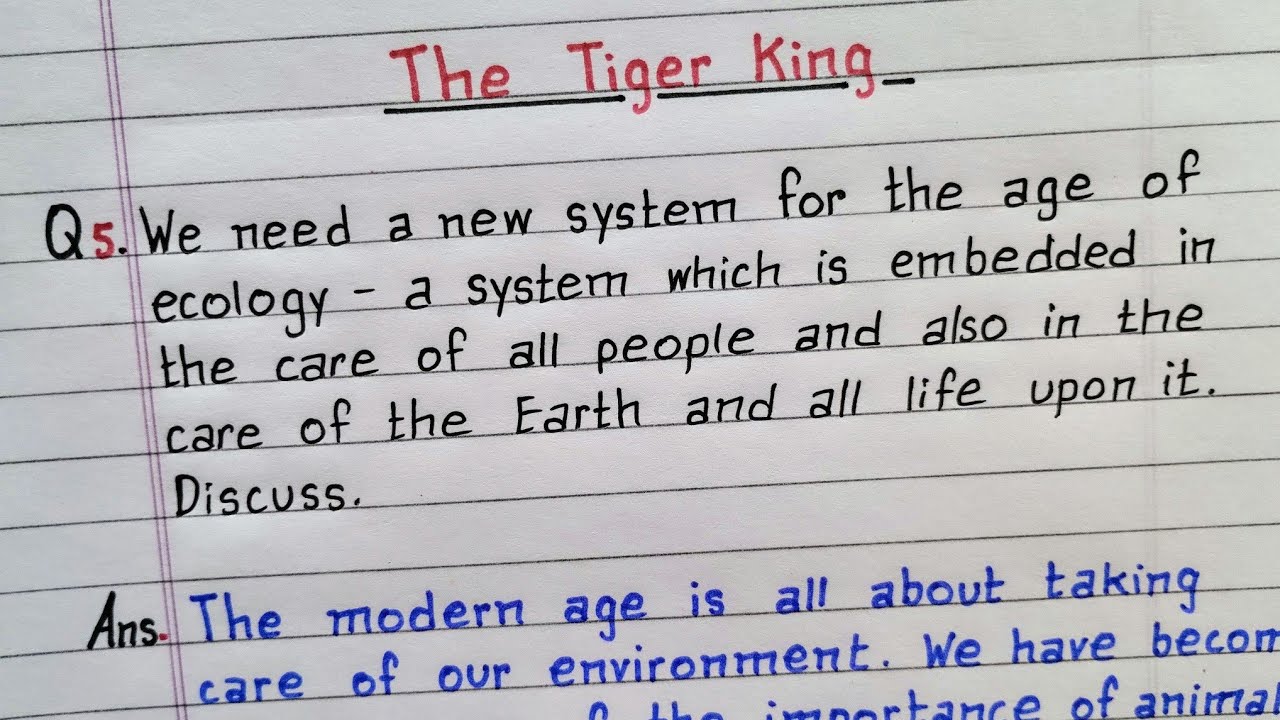 The Tiger King
Q5. We need a new system for the age of
ecology - a system which is embedded in
the care of all people and also in the
care of the Earth and all life upon it.
Discuss.
Ans. The modern age is all about taking
care of our environment. We have becom
the importance of animal